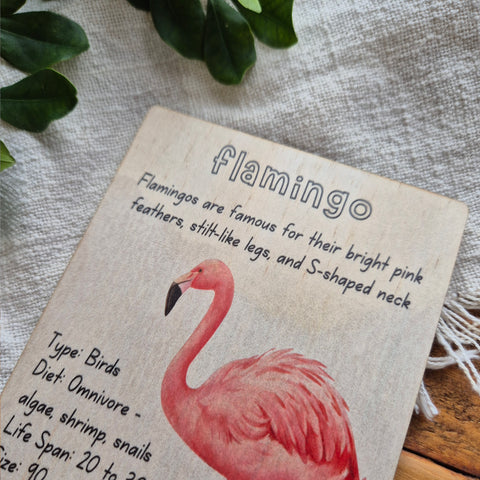 flamingo
Flamingos are famous for their bright pink
feathers, stilt-like legs, and S-shaped neck
Type: Birds
Diet: Omnivore -
algae, shrimp, snails
Life Span: 20 to
Size: 90